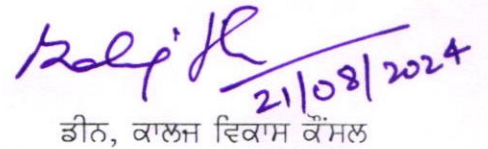 21/08/2024
ਡੀਨ, ਕਾਲਜ ਵਿਕਾਸ ਕੌਂਸਲ